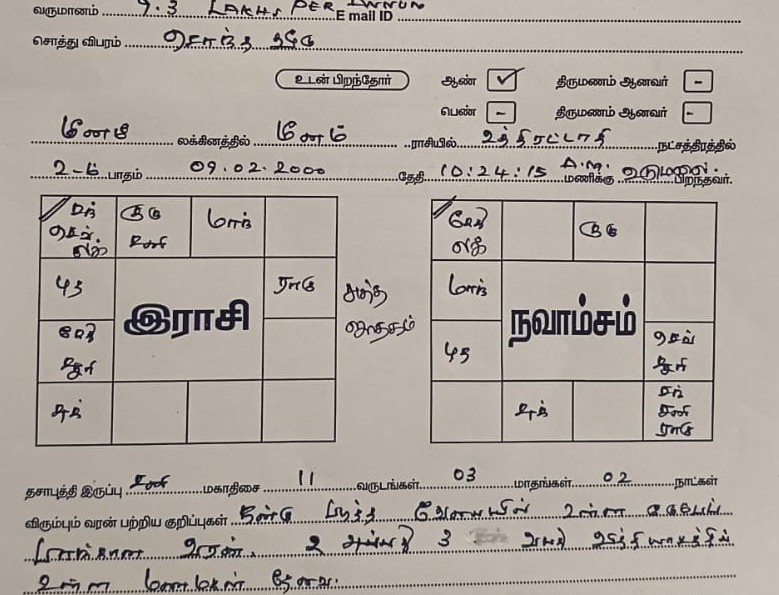 வருமானம் 9.3 LAKHS PER ANNUM E mail ID
சொத்து விபரம் சொந்த வீடு
உடன் பிறந்தோர் ஆண் ✓ திருமணம் ஆனவர் -
பெண் - திருமணம் ஆனவர் -
மீனம் லக்கினத்தில் மீனம் ராசியில் உத்திரட்டாதி நட்சத்திரத்தில்
2-ம் பாதம் 09.02.2000 தேதி 10:24:15 A.M. மணிக்கு உடுமலை. பிறந்தவர்.
சந் குரு மாந் கேது குரு
செவ் சனி லக்
லக்
புத ராகு சுத்த மாந்
இராசி ஜாதகம் நவாம்சம்
கேது புத செவ்
சூரி சூரி
சுக் சுக் சந்
சனி
ராகு
தசாபுத்தி இருப்பு சனி மகாதிசை 11 வருடங்கள் 03 மாதங்கள் 02 நாட்கள்
விரும்பும் வரன் பற்றிய குறிப்புகள் நன்கு படித்த வேலையில் உள்ள
வரன். 2 3 வயது வித்தியாசத்தில்
உள்ள மணமகன் தேவை.